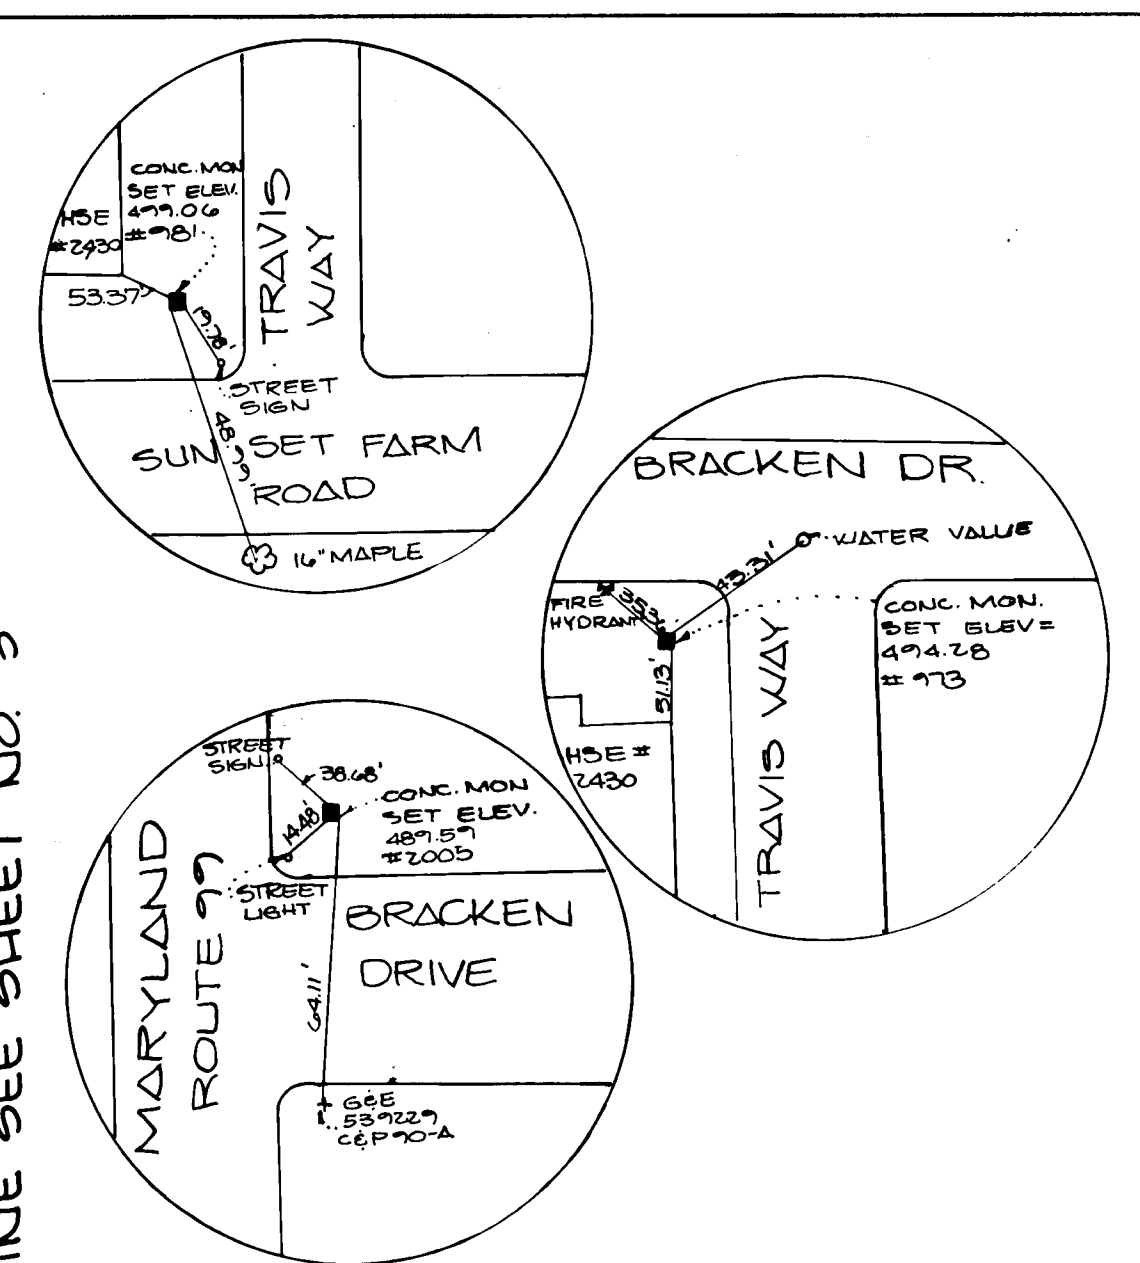 CONC. MON
SET ELEV.
499.06
#981
HSE
#2430
53.37'
19.78'
TRAVIS
WAY
STREET
SIGN
48.99'
SUN SET FARM
ROAD
16" MAPLE
BRACKEN DR.
WATER VALUE
43.31'
FIRE
HYDRANT
CONC. MON.
SET ELEV=
494.28
#973
51.13'
HSE #
2430
TRAVIS WAY
STREET
SIGN
38.68'
CONC. MON
SET ELEV.
489.59
#2005
14.48'
STREET
LIGHT
MARYLAND
ROUTE 99
BRACKEN
DRIVE
64.11'
G&E
539229
C&P 90-A
INE SEE SHEET NO.